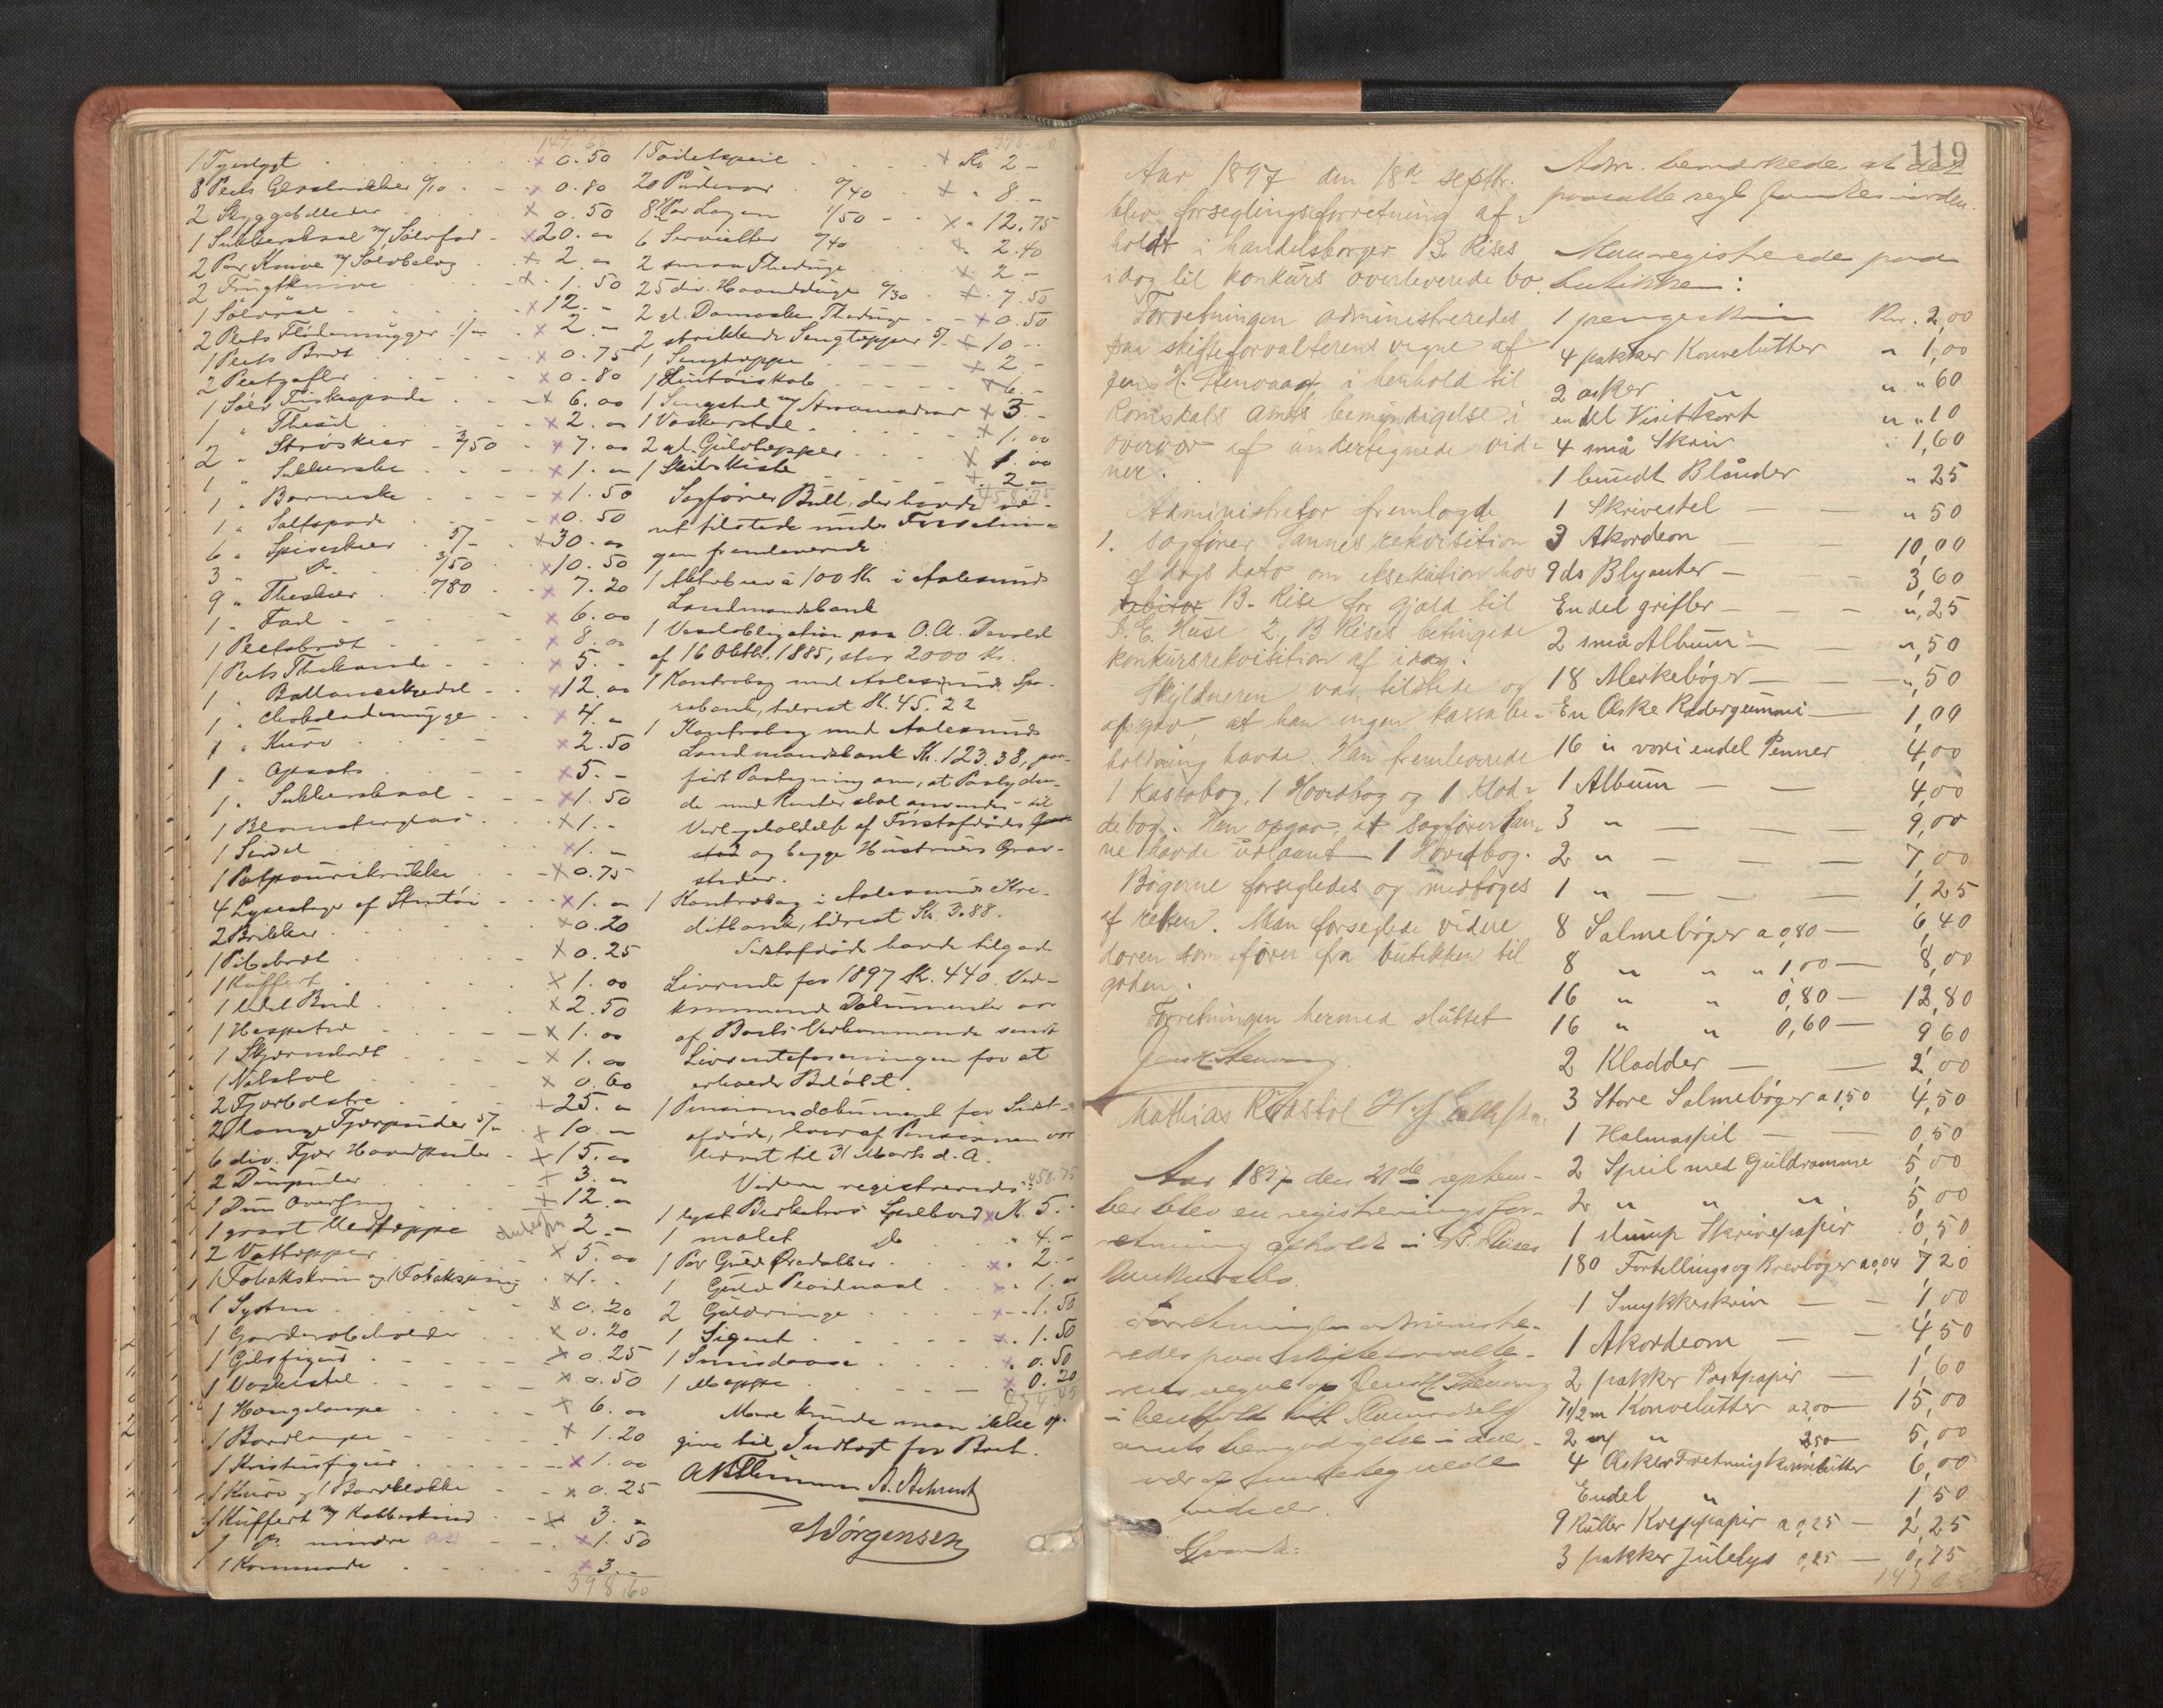 147.65
1 Tyvelygt 0.50
8 Pects Glassbrikker 0/10 0.80
2 Skyggebilleder 0.50
1 Sukkerskaal m/ Sølvfad 20.00
2 Par Knive m/ Sølvbelæg 2.00
2 Frugtknive 1.50
1 Sølvøse 12.-
2 Plets Flødemugger 1/00 2.-
1 Plets Bret 0.75
2 Pletgafler 0.80
1 Sølv Fiskespade 6.00
1 " Thesil 2.00
2 " Strøskeer 3/50 7.00
1 " Sukkerske 1.00
1 " Barneske 1.50
1 " Saltspade 0.50
6 " Spiseskeer 5/- 30.00
3 " do. 3/50 10.50
9 " Theskeer 0/80 7.20
1 " Fad 6.00
1 Pletsbret 8.00
1 Plets Thekande 5.-
1 " Ballonestedel 12.00
1 " Chokolademugge 4.-
1 " Kurv 2.50
1 " Opsats 5.-
1 " Sukkerskaal 1.50
1 Blomsterglas 1.-
1 Seidel 1.-
1 Potpourrikrukke 0.75
4 Lysestager af Stentøi 1.-
2 Brikker 0.20
1 Pibebret 0.25
1 Kuffert 1.00
1 lidet Bord 2.50
1 Haspetræ 1.00
1 Skjermbret 1.00
1 Natstol 0.60
2 Fjærbolstre 25.-
2 lange Fjærpuder 5/00 10.-
6 div. Fjær Hovedpuder 15.00
2 Dunpuder 3.00
1 Dun Overseng 12.00
1 graat Uldteppe 2.-
2 Vattepper 5.00
1 Tobakskrin og 1 Tobakspung 1.-
1 Systen 0.20
1 Garderobeholder 0.20
1 Gibsfigur 0.25
1 Vaskestel 0.50
1 Hængelampe 6.00
1 Bordlampe 1.20
1 Kristusfigur 1.00
1 Kurv og 1 Bordklokke 0.25
1 Kuffert m/ Kobbeskind 3.-
1 do. mindre 1.50
1 Kommode 3.-
398.60
1 Toiletspeil Kr 2-
20 Pudevar 0/40 " 8.-
8½ Par Lagen 1/50 " 12.75
6 Servietter 0/40 2.40
2 smaa Theduge 2-
25 div. Haandduge 0/30 7.50
2 gl. Damaskes Theduge 0.50
2 strikkede Sengtepper 5/- 10-
1 Sengteppe 2-
1 Lintøiskab 6.-
1 Sengsted m/ Straamadras 3.-
1 Vaskestol 1.00
2 gl. Gulvtepper 1.00
1 Skibskiste 2.-
458.75
Sagfører Bull, der havde væ-
ret tilstede under Forretnin-
gen fremleverede
1 Aktiebrev à 100 Kr i Aalesunds
Landmandsbank
1 Vexelobligation paa O. A. Devold
af 16 Oktbr. 1885, stor 2000 Kr.
1 Kontrabog med Aalesunds Spa-
rebank, tilrest Kr. 45.22
1 Kontrabog med Aalesunds
Landmandsbank Kr. 123.38, paa-
ført Paategning om, at Paalyden-
de med Renter skal anvendes til
Vedligeholdelse af Førstafdødes Grav-
sted og begge Hustruers Grav-
steder.
1 Kontrabog i Aalesunds Kre-
ditbank, tilrest Kr. 3.88.
Sidstafdøde havde tilgode
Livrente for 1897 Kr. 440. Ved-
kommende Dokumenter var
af Boets Vedkommende sendt
Livrenteforeningen for at
erholde Beløbet.
1 Pensionsdokument for Sidst-
afdøde, hvoraf Pensionen var
hævet til 31 Marts d. A.
Videre registreredes: 458.75
1 lyst Birketræs Spillebord Kr. 5.-
1 malet do " 4.-
1 Par Guld Øredobber " 2.-
1 Guld Pladnaal " 1.00
2 Guldringe " 1.50
1 Signet " 1.50
1 Snusdaase " 0.50
1 Mappe 0.20
Mere kunde man ikke op-
give til Indtægt for Boet.
Jørgensen
119
Aar 1897 den 18de septbr.
blev forseglingsforretning af-
holdt i handelsborger B. Rises
idag til konkurs overleverede bo
Forretningen administreredes
paa skifteforvalterens vegne af
Jens H. Stenvaag i henhold til
Romsdals amts bemyndigelse i
overvær af undertegnede vid-
ner.
Administrator fremlagde
1. sagfører Tannes rekvisition
af dags dato om eksekution hos
debitor B. Rise for gjæld til
I. E. Huse 2, B Rises betingede
konkursrekvisition af idag.
Skyldneren var tilstede og
opgav, at han ingen kassabe-
holdning havde. Han fremleverede
1 Kassabog, 1 Hovedbog og 1 Klad-
debog. Han opgav, at Sagfører Tan-
ne havde udlaant 1 Hovedbog.
Bøgerne forsegledes og medtoges
af retten. Man forseglede videre
døren som fører fra butikken til
gaden.
Forretningen hermed sluttet
Jens H. Stenvaag
Mathias K Hastøl
Aar 1897 den 21de septem-
ber blev en registreringsfor-
retning afholdt i B. Rises
konkursbo.
Forretningen administre-
redes paa skifteforvalte-
rens vegne af Jens H Stenvaag
i henhold til Romsdals
amts bemyndigelse i over-
vær af undertegnede
vidner.
Adm. bemærkede at det
paasatte segl fandtes i orden.
Man registrerede paa
butikken:
1 pengeskrin Kr. 2,00
4 pakker Konvolutter " 1,00
2 æsker " " " 60
endel Visitkort " " 10
4 små Skrin " 1,60
1 bundt Blånder " 25
1 Skrivestel — — " 50
3 Akordeon — — 10,00
9 ds Blyanter — — 3,60
Endel grifler — — — ", 25
2 små Album — — ", 50
18 Merkebøger — — ", 50
En Æske Radergummi — 1,00
16 " vori endel Penner 4,00
1 Album — — 4,00
3 " — — — 9,00
2 " — — — 7,00
1 " — — — 1,25
8 Salmebøger a 0,80 — 6,40
8 " " " 1,00 — 8,00
16 " " 0,80 — 12,80
16 " " 0,60 — 9 60
2 Kladder — — 2,00
3 Store Salmebøger a 1,50 4,50
1 Halmaspil — — 0,50
2 Speil med Guldramme 5,00
2 " " " 5,00
1 slump Skrivepapir 0,50
180 Fortellings og Brevbøger a 0,04 7,20
1 Smykkeskrin — — 1,00
1 Akordeom — — 4,50
2 pakker Postpapir — 1,60
7½ m Konvolutter a 2,00 — 15,00
2 m " 2,50 — 5,00
4 Æsker Forretningkonvolutter 6,00
Endel " 1,50
9 Ruller Kreppapir a 0,25 — 2,25
3 pakker Julelys 0,25 — 0,75